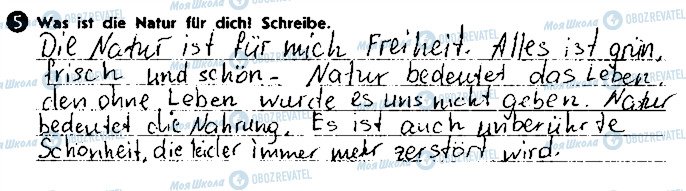 5 Was ist die Natur für dich? Schreibe.
Die Natur ist für mich Freiheit. Alles ist grün,
frisch und schön. Natur bedeutet das Leben,
den ohne Leben wurde es uns nicht geben. Natur
bedeutet die Nahrung. Es ist auch unberührte
Schönheit, die leider immer mehr zerstört wird.